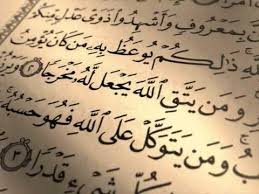 بِمَعْرُوفٍ وَأَشْهِدُوا۟ ذَوَىْ عَدْلٍ مِّنكُ
ذَٰلِكُمْ يُوعَظُ بِهِۦ مَن كَانَ يُؤْمِنُ
وَمَن يَتَّقِ ٱللَّهَ يَجْعَل لَّهُۥ مَخْرَجًا ٢
بُ وَمَن يَتَوَكَّلْ عَلَى ٱللَّهِ فَهُوَ حَسْبُهُۥٓ
شَىْءٍ قَدْرًا ٣